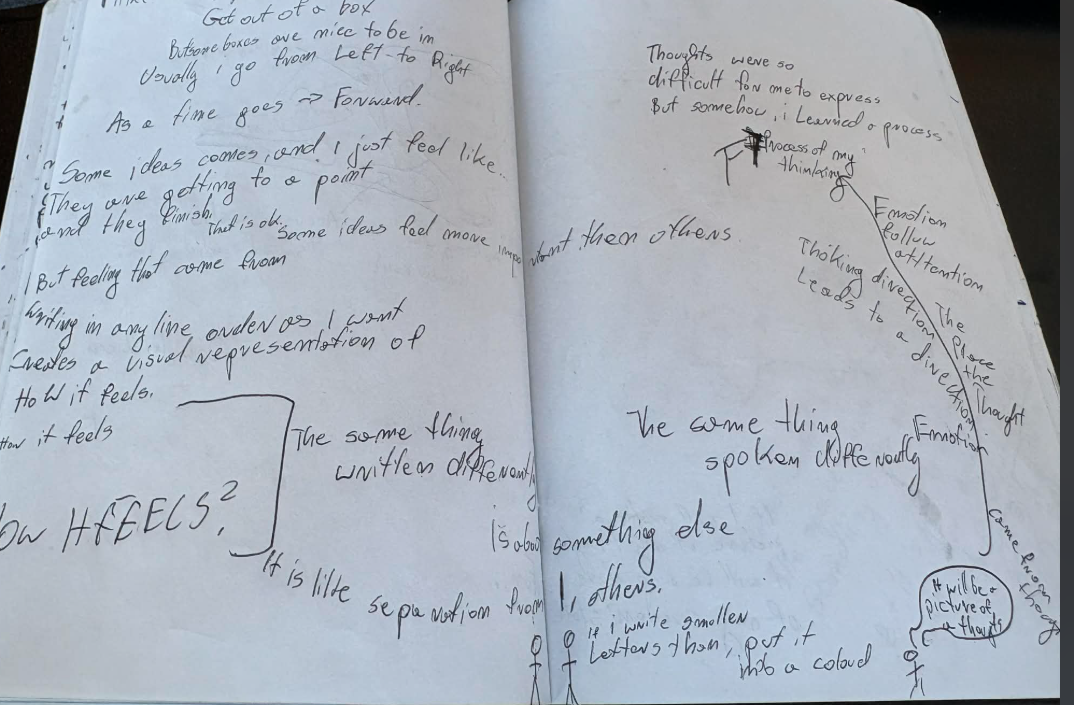 Get out of a box
But some boxes are nice to be in
Usually i go from Left to Right
As a time goes → Forward.
Some ideas comes, and i just feel like..
They are getting to a point
and they finish.
That is ok.
Some ideas feel more important then others.
But feeling that come from
Writing in any line order as I want
Creates a visual representation of
How it feels.
How it feels
The same thing
written differently
Is about something else
It is like separation from I, others.
Thoughts were so
difficult for me to express
But somehow, i Learned a process
Process of my
thinking
Emotion
follow
attention
Thöking direction
Leads to a direction
The
place
the
Thought
Emotion
come from
The same thing
spoken differently
if i write smaller
Letters than, put it
into a coloud
It will be a
picture of
a thougts